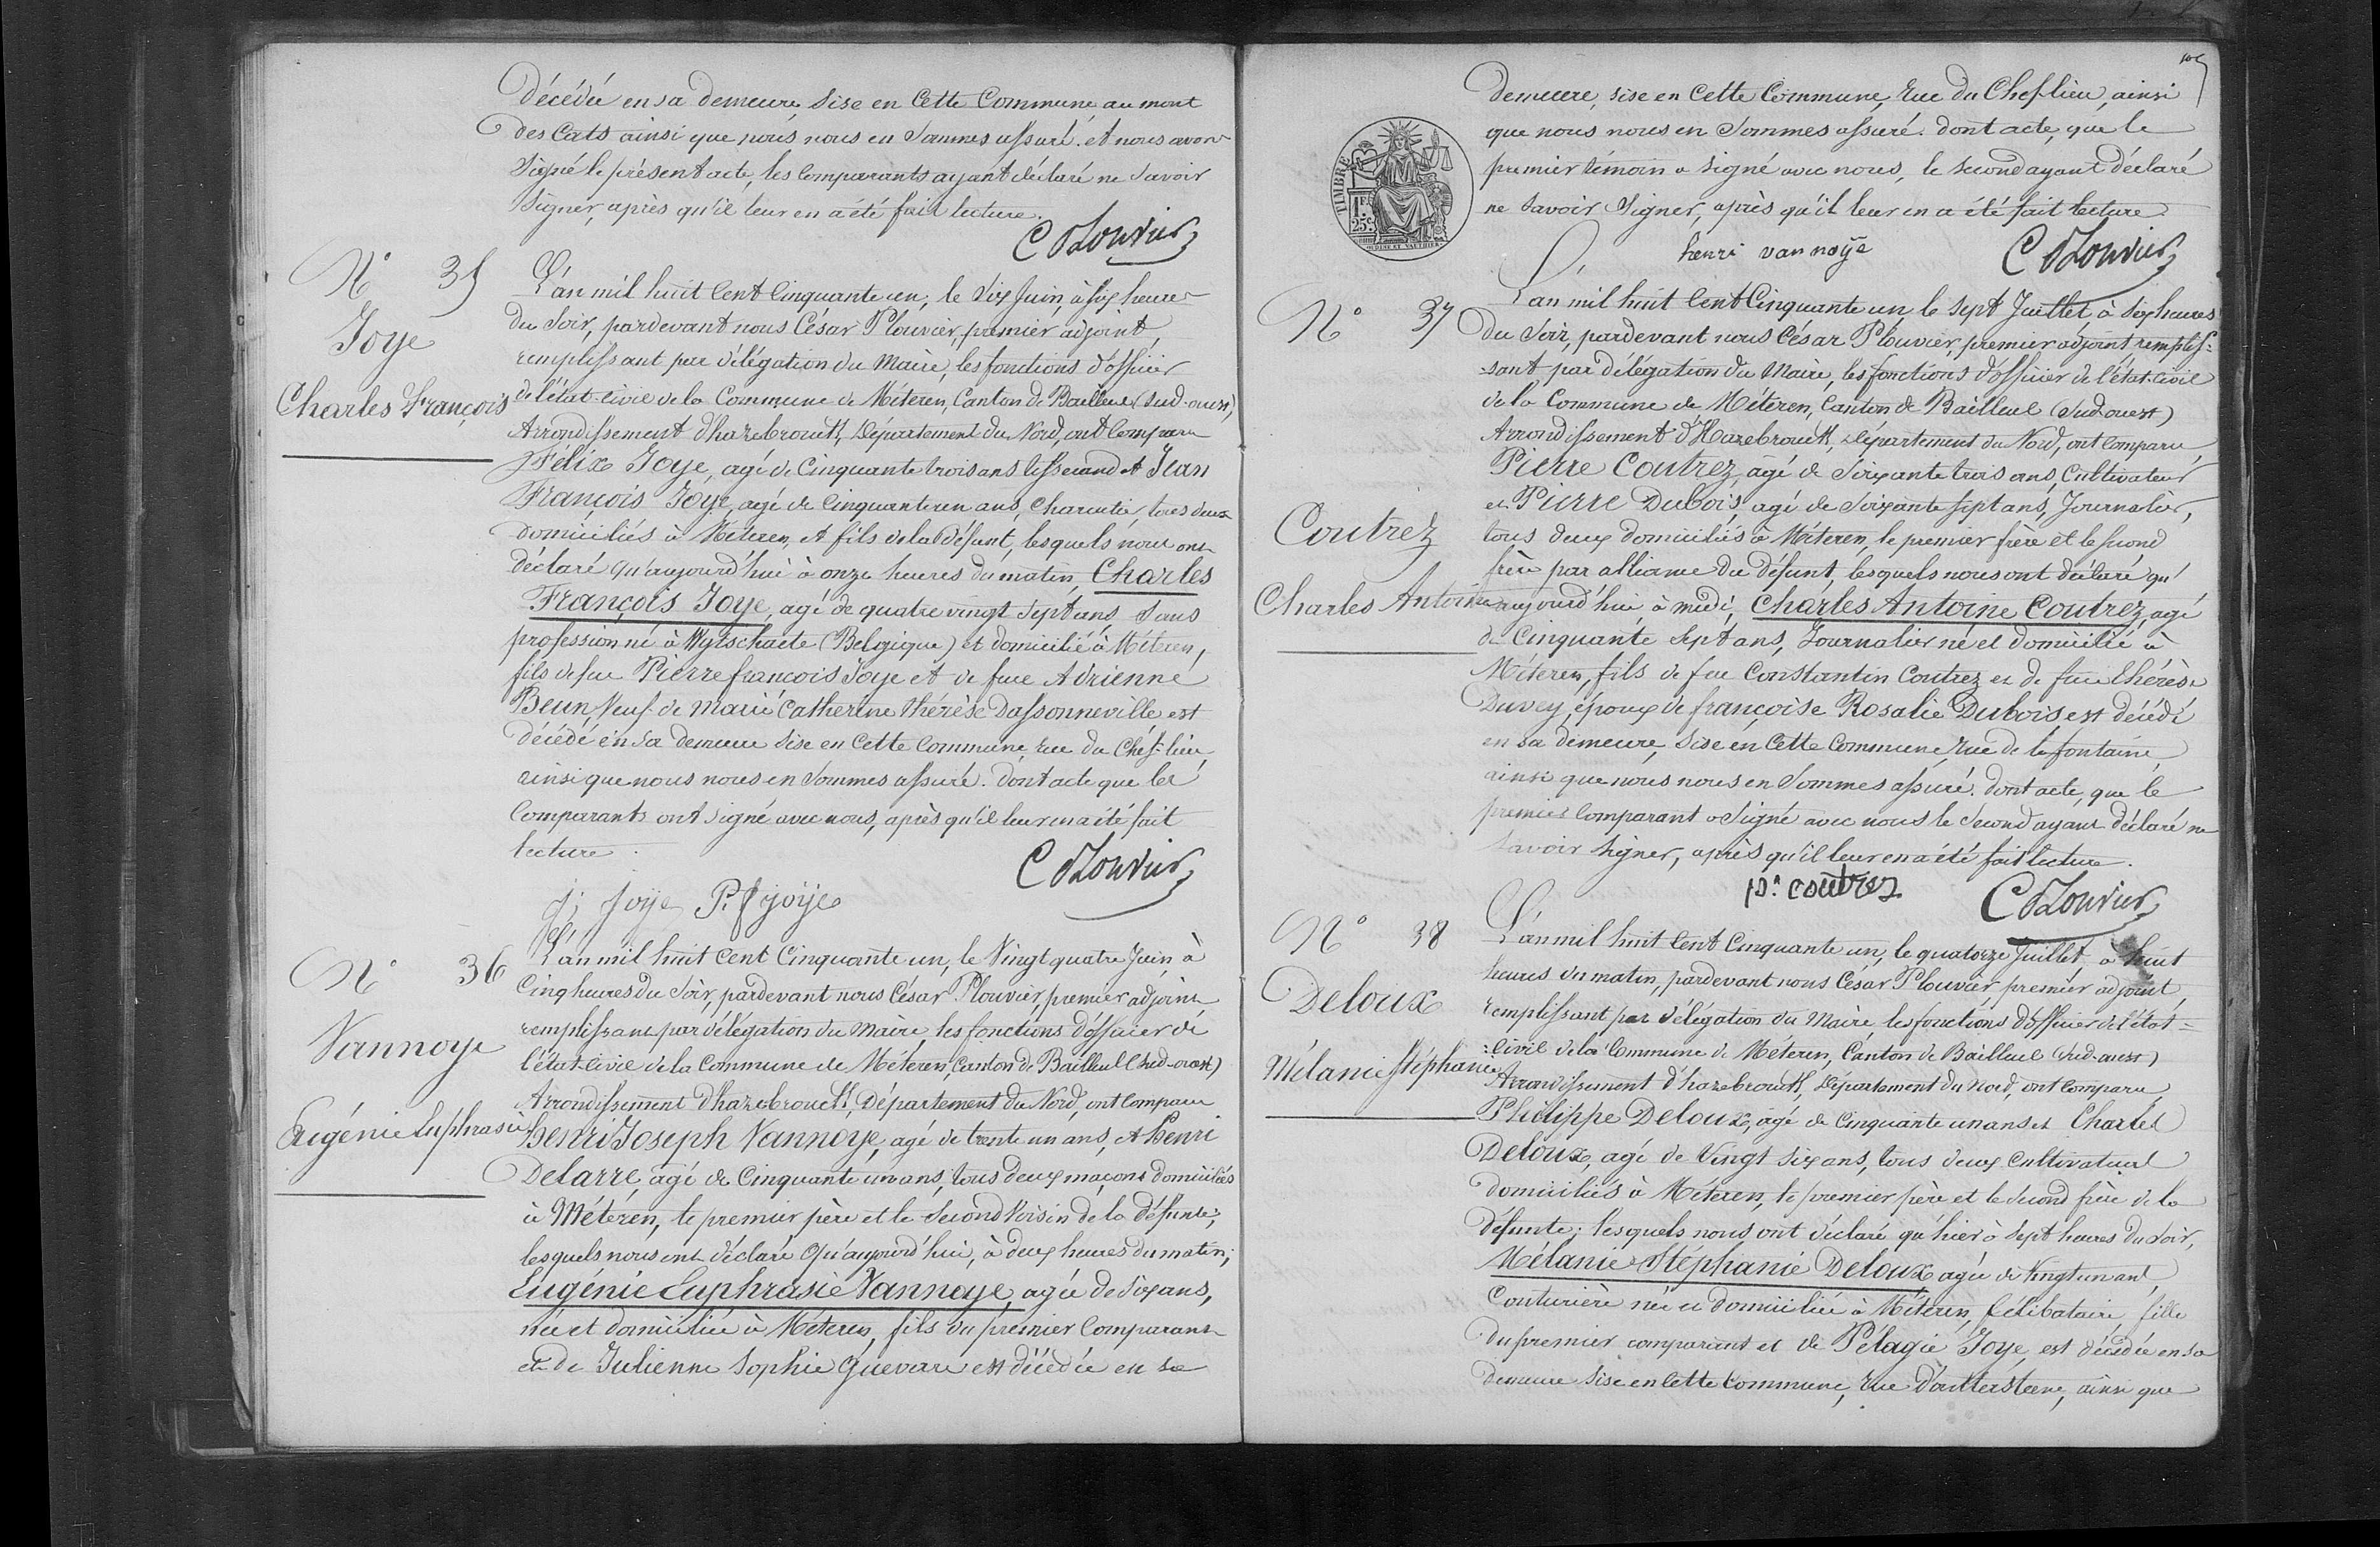 Décédée en sa demeure, sise en cette Commune, au mont
des Cats ainsi que nous nous en sommes assuré. et nous avons
signé le présent acte, les comparants ayant déclaré ne savoir
signer, après qu'il leur en a été fait lecture.
C Plouvier
N° 35
Joye
Charles François
L'an mil huit cent cinquante un, le six Juin, à six heures
du soir, pardevant nous César Plouvier, premier adjoint,
remplissant par délégation du Maire, les fonctions d'officier
de l'état-civil de la Commune de Méteren, Canton de Bailleul (sud-ouest)
Arrondissement d'hazebrouck, Département du Nord, ont comparu
Félix Joye, agé de cinquante trois ans tisserand et Jean
François Joye, agé de cinquante un ans, charcutier, tous deux
domiciliés à Méteren, et fils de la défunt, lesquels nous ont
déclaré qu'aujourd'hui à onze heures du matin, Charles
François Joye, agé de quatre vingt sept ans, sans
profession né à Wytschaete (Belgique) et domicilié à Méteren,
fils de feu Pierre françois Joye et de feue Adrienne
Beun Veuf de Marie Catherine thérèse Dassonneville est
décédé en sa demeure sise en cette commune, rue du Chef-lieu,
ainsi que nous nous en sommes assuré. dont acte que les
comparants ont signé avec nous, après qu'il leur en a été fait
lecture.
C Plouvier
f; joye P. f joye
N° 36
Vannoye
Eugénie Euphrasie
L'an mil huit cent cinquante un, le vingt quatre Juin, à
cinq heures du soir, pardevant nous César Plouvier, premier adjoint
remplissant par délégation du Maire, les fonctions d'officier de
l'état-civil de la commune de Méteren, Canton de Bailleul (sud-ouest)
Arrondissement d'hazebrouck, Département du Nord, ont comparu
henri Joseph Vannoye, agé de trente un ans, et henri
Delarre, agé de cinquante un ans, tous deux maçons domiciliés
à Méteren, le premier père et le second voisin de la défunte;
lesquels nous ont déclaré qu'aujourd'hui, à deux heures du matin;
Eugénie Euphrasie Vannoye, agée de six ans,
née et domiciliée à Méteren, fils du premier comparant
et de Julienne Sophie Guevare est décédée en sa
demeure, sise en cette Commune, rue du Chef-lieu, ainsi
que nous nous en sommes assuré. dont acte, que le
premier témoin a signé avec nous, le second ayant déclaré
ne savoir signer, après qu'il leur en a été fait lecture.
TIMBRE
1F.
25c.
henri vannoye
C Plouvier
N° 37
Coutrez
Charles Antoine
L'an mil huit cent cinquante un le sept Juillet, à six heures
du soir, pardevant nous César Plouvier, premier adjoint remplis-
-sant par délégation du Maire, les fonctions d'officier de l'état-civil
de la Commune de Méteren, Canton de Bailleul (sud ouest)
Arrondissement d'Hazebrouck, Département du Nord, ont comparu,
Pierre Coutrez, agé de soixante trois ans, cultivateur
et Pierre Dubois, agé de soixante sept ans, Journalier,
tous deux domiciliés à Méteren, le premier frère et le second
frère par alliance du défunt, lesquels nous ont déclaré qu'
aujourd'hui à midi, Charles Antoine Coutrez, agé
de cinquante sept ans, Journalier né et domicilié à
Méteren, fils de feu Constantin Coutrez et de feue thérèse
Duvey, époux de françoise Rosalie Dubois est décédé
en sa demeure, sise en cette commune, rue de la fontaine,
ainsi que nous nous en sommes assuré. dont acte, que le
premier comparant a signé avec nous le second ayant déclaré ne
savoir signer, après qu'il leur en a été fait lecture.
p. coutrez
C Plouvier
N° 38
Deloux
Mélanie Stéphanie
L'an mil huit cent cinquante un, le quatorze Juillet, à huit
heures du matin, pardevant nous César Plouvier premier adjoint,
remplissant par délégation du Maire, les fonctions d'officier de l'état-
-civil de la Commune de Méteren, Canton de Bailleul (sud-ouest)
Arrondissement d'hazebrouck, Département du Nord, ont comparu
Philippe Deloux, agé de cinquante un ans et Charles
Deloux, agé de vingt six ans, tous deux cultivateurs
domiciliés à Méteren, le premier père et le second frère de la
défunte; lesquels nous ont déclaré qu'hier à sept heures du soir,
Mélanie Stéphanie Deloux agée de vingt un ans,
couturière née et domiciliée à Méteren, célibataire, fille
du premier comparant et de Pélagie Joye, est décédée en sa
demeure sise en cette commune, rue d'outtersteene, ainsi que